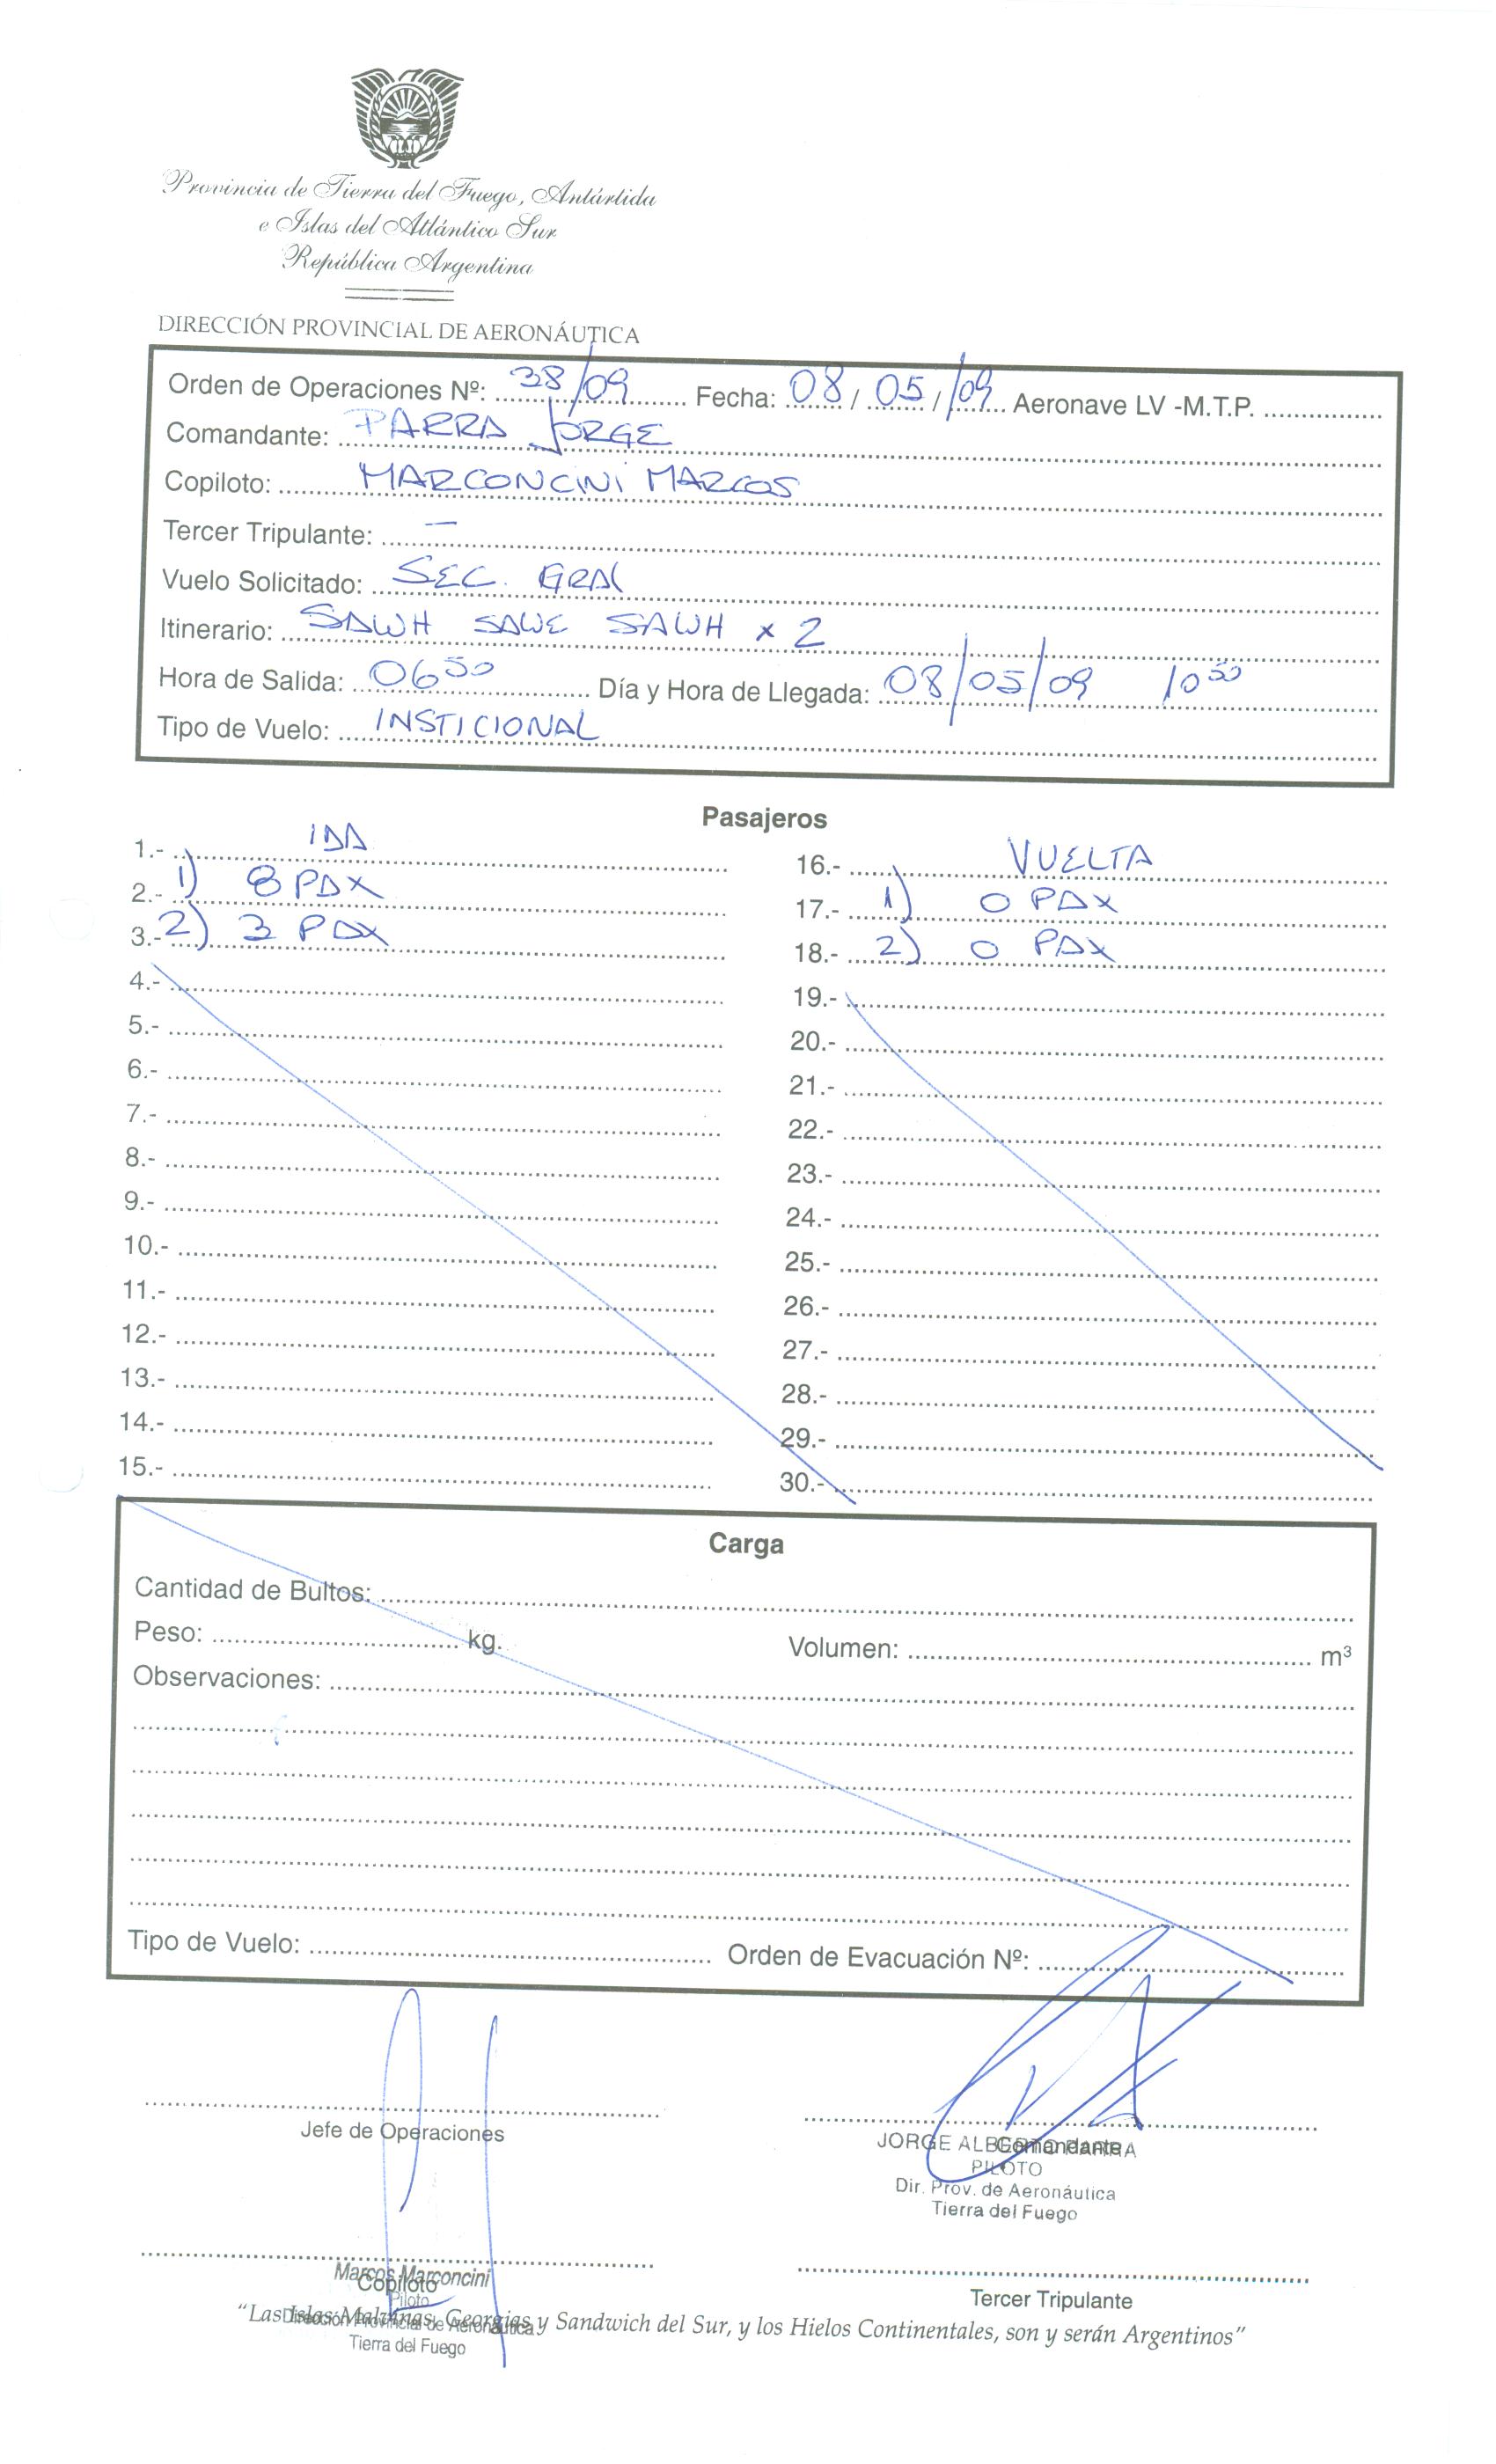 Provincia de Tierra del Fuego, Antártida
e Islas del Atlántico Sur
República Argentina
DIRECCIÓN PROVINCIAL DE AERONÁUTICA
Orden de Operaciones Nº: 38/09 Fecha: 08 / 05 / 09 Aeronave LV -M.T.P.
Comandante: PARRA JORGE
Copiloto: MARCONCINI MARCOS
Tercer Tripulante: —
Vuelo Solicitado: SEC. GRAL
Itinerario: SAWH SAWE SAWH x 2
Hora de Salida: 0650 Día y Hora de Llegada: 08/05/09 1050
Tipo de Vuelo: INSTICIONAL
Pasajeros
1.- IDA 16.- VUELTA
2.- 1) 8 PAX 17.- 1) 0 PAX
3.- 2) 3 PAX 18.- 2) 0 PAX
4.- 19.-
5.- 20.-
6.- 21.-
7.- 22.-
8.- 23.-
9.- 24.-
10.- 25.-
11.- 26.-
12.- 27.-
13.- 28.-
14.- 29.-
15.- 30.-
Carga
Cantidad de Bultos:
Peso: kg. Volumen: m³
Observaciones:
Tipo de Vuelo: Orden de Evacuación Nº:
Jefe de Operaciones Comandante
JORGE ALBERTO PARRA
PILOTO
Dir. Prov. de Aeronáutica
Tierra del Fuego
Marcos Marconcini
Copiloto Tercer Tripulante
Piloto
Dirección Provincial de Aeronáutica
"Las Islas Malvinas, Georgias y Sandwich del Sur, y los Hielos Continentales, son y serán Argentinos"
Tierra del Fuego